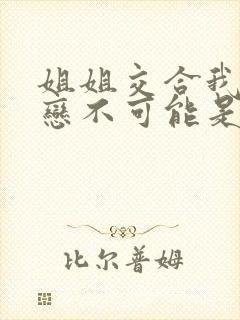 姐姐交合我
戀不可能是
比尔普姆